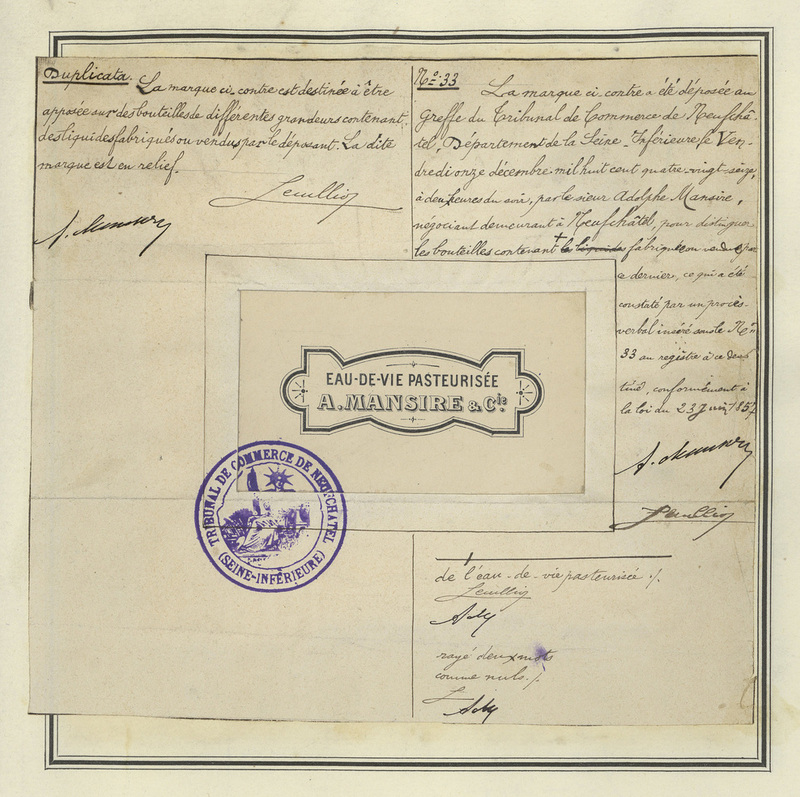 Duplicata. La marque ci-contre est destinée à être
apposée sur des bouteilles de différentes grandeurs contenant
des liquides fabriqués ou vendus par le déposant. La dite
marque est en relief.
Leuillion
A. Mansire
No 33 La marque ci contre a été déposée au
Greffe du Tribunal de Commerce de Neufchâ-
tel, Département de la Seine-Inférieure, le Ven-
dredi onze décembre mil huit cent quatre-vingt-seize,
à deux heures du soir, par le sieur Adolphe Mansire,
négociant demeurant à Neufchâtel, pour distinguer
les bouteilles contenant les liquides fabriqués ou vendus par
ce dernier, ce qui a été
constaté par un procès-
verbal inséré sous le No
33 au registre à ce des-
tiné, conformément à
la loi du 23 Juin 1857
A. Mansire
Leuillion
EAU-DE-VIE PASTEURISÉE
A. MANSIRE & Cie.
TRIBUNAL DE COMMERCE DE NEUFCHATEL
(SEINE-INFÉRIEURE)
de l'eau-de-vie pasteurisée ./.
Leuillion
AM
rayé deux mots
comme nuls ./.
L
AM